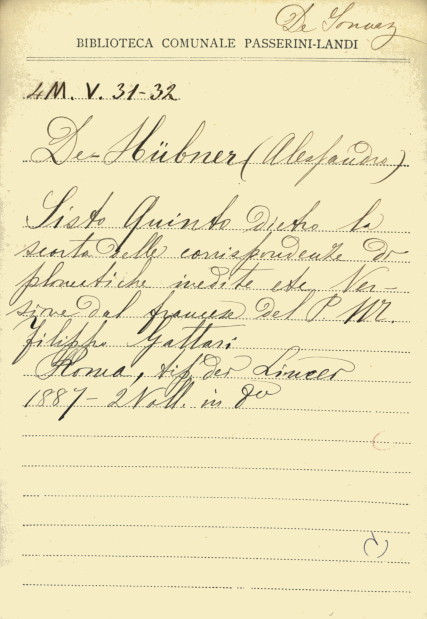 De
BIBLIOTECA COMUNALE PASSERINI-LANDI
4M. V. 31-32
De-Hübner (Alessandro)
Sisto Quinto dietro la
scorta delle corrispondenze di
plomatiche inedite etc, Ver-
sione dal francese del P. M
Filippo Gattari
Roma, tip. dei Lincei
1887 - 2 Voll. in 8º